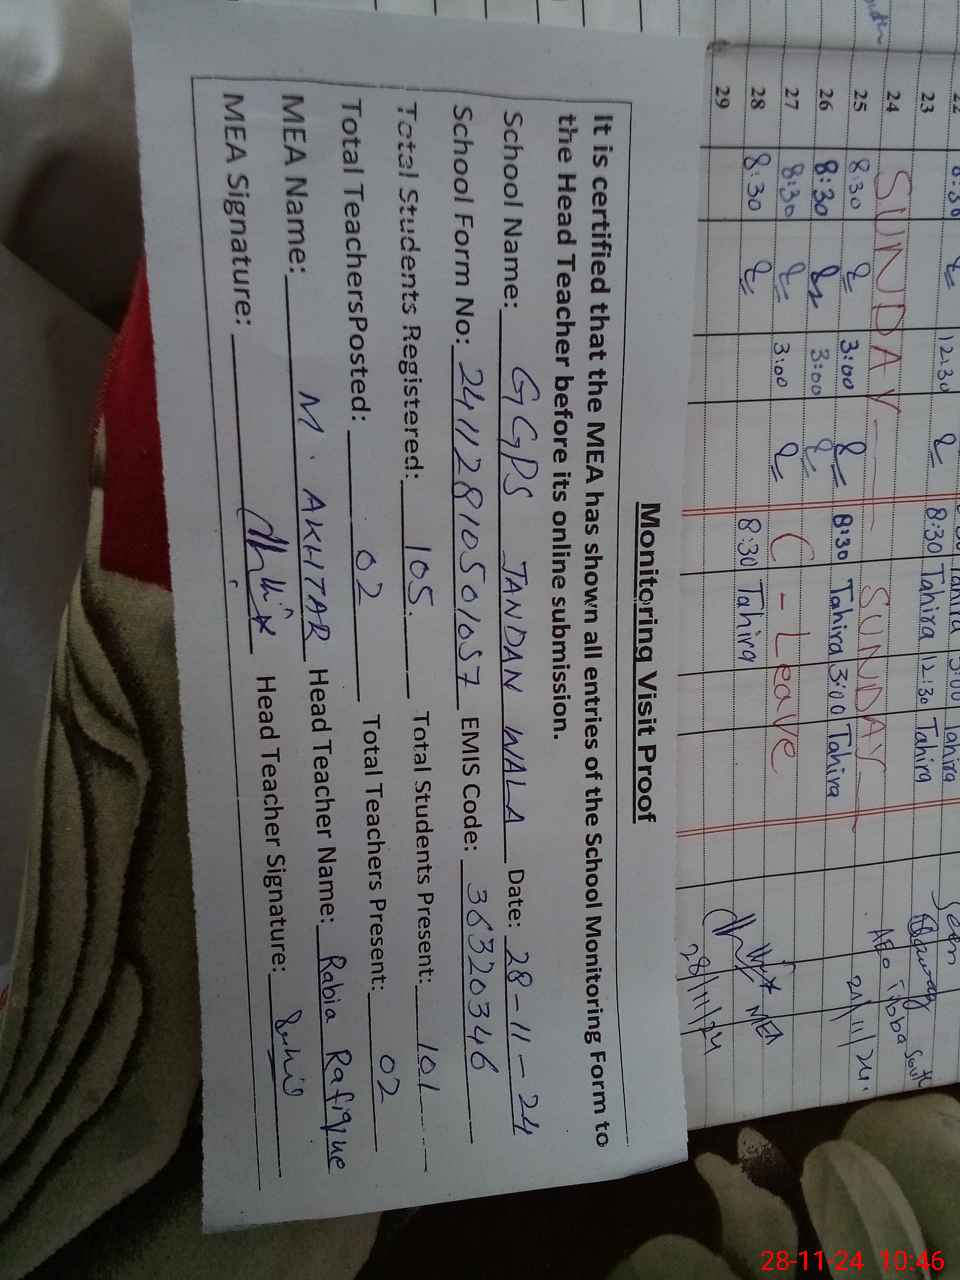 Monitoring Visit Proof
It is certified that the MEA has shown all entries of the School Monitoring Form to
the Head Teacher before its online submission.
School Name: GGPS JANDAN WALA Date: 28-11-24
School Form No: 2411281050 1057 EMIS Code: 36320346
Total Students Registered: 105. Total Students Present: 101
Total TeachersPosted: 02 Total Teachers Present: 02
MEA Name: M. AKHTAR Head Teacher Name: Rabia Rafique
MEA Signature: Head Teacher Signature:
22 8:30 3:00 Tahira
23 12:30 8:30 Tahira 12:30 Tahira
24 SUNDAY SUNDAY
25 8:30 3:00 8:30 Tahira 3:00 Tahira
26 8:30 3:00
27 8:30 3:00 C-Leave
28 8:30 8:30 Tahira
29
AEO
21/11/24
MEA
28/11/24
28-11-24 10:46